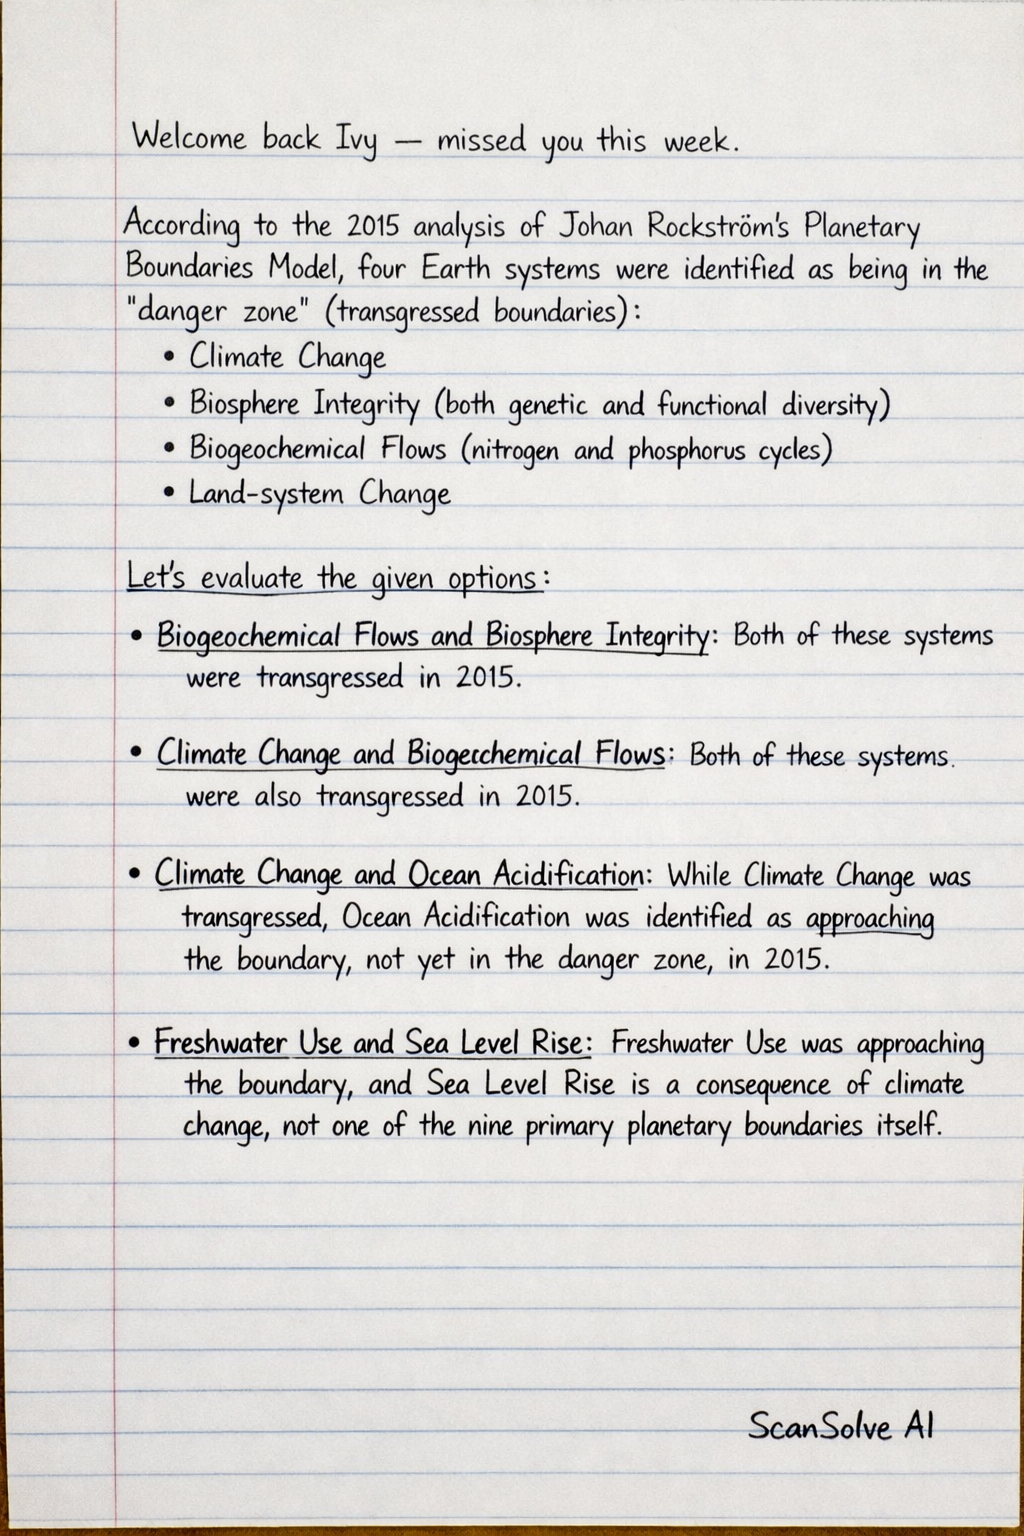 Welcome back Ivy — missed you this week.
According to the 2015 analysis of Johan Rockström's Planetary
Boundaries Model, four Earth systems were identified as being in the
"danger zone" (transgressed boundaries):
• Climate Change
• Biosphere Integrity (both genetic and functional diversity)
• Biogeochemical Flows (nitrogen and phosphorus cycles)
• Land-system Change
Let's evaluate the given options:
• Biogeochemical Flows and Biosphere Integrity: Both of these systems
were transgressed in 2015.
• Climate Change and Biogecchemical Flows: Both of these systems.
were also transgressed in 2015.
• Climate Change and Ocean Acidification: While Climate Change was
transgressed, Ocean Acidification was identified as approaching
the boundary, not yet in the danger zone, in 2015.
• Freshwater Use and Sea Level Rise: Freshwater Use was approaching
the boundary, and Sea Level Rise is a consequence of climate
change, not one of the nine primary planetary boundaries itself.
ScanSolve AI